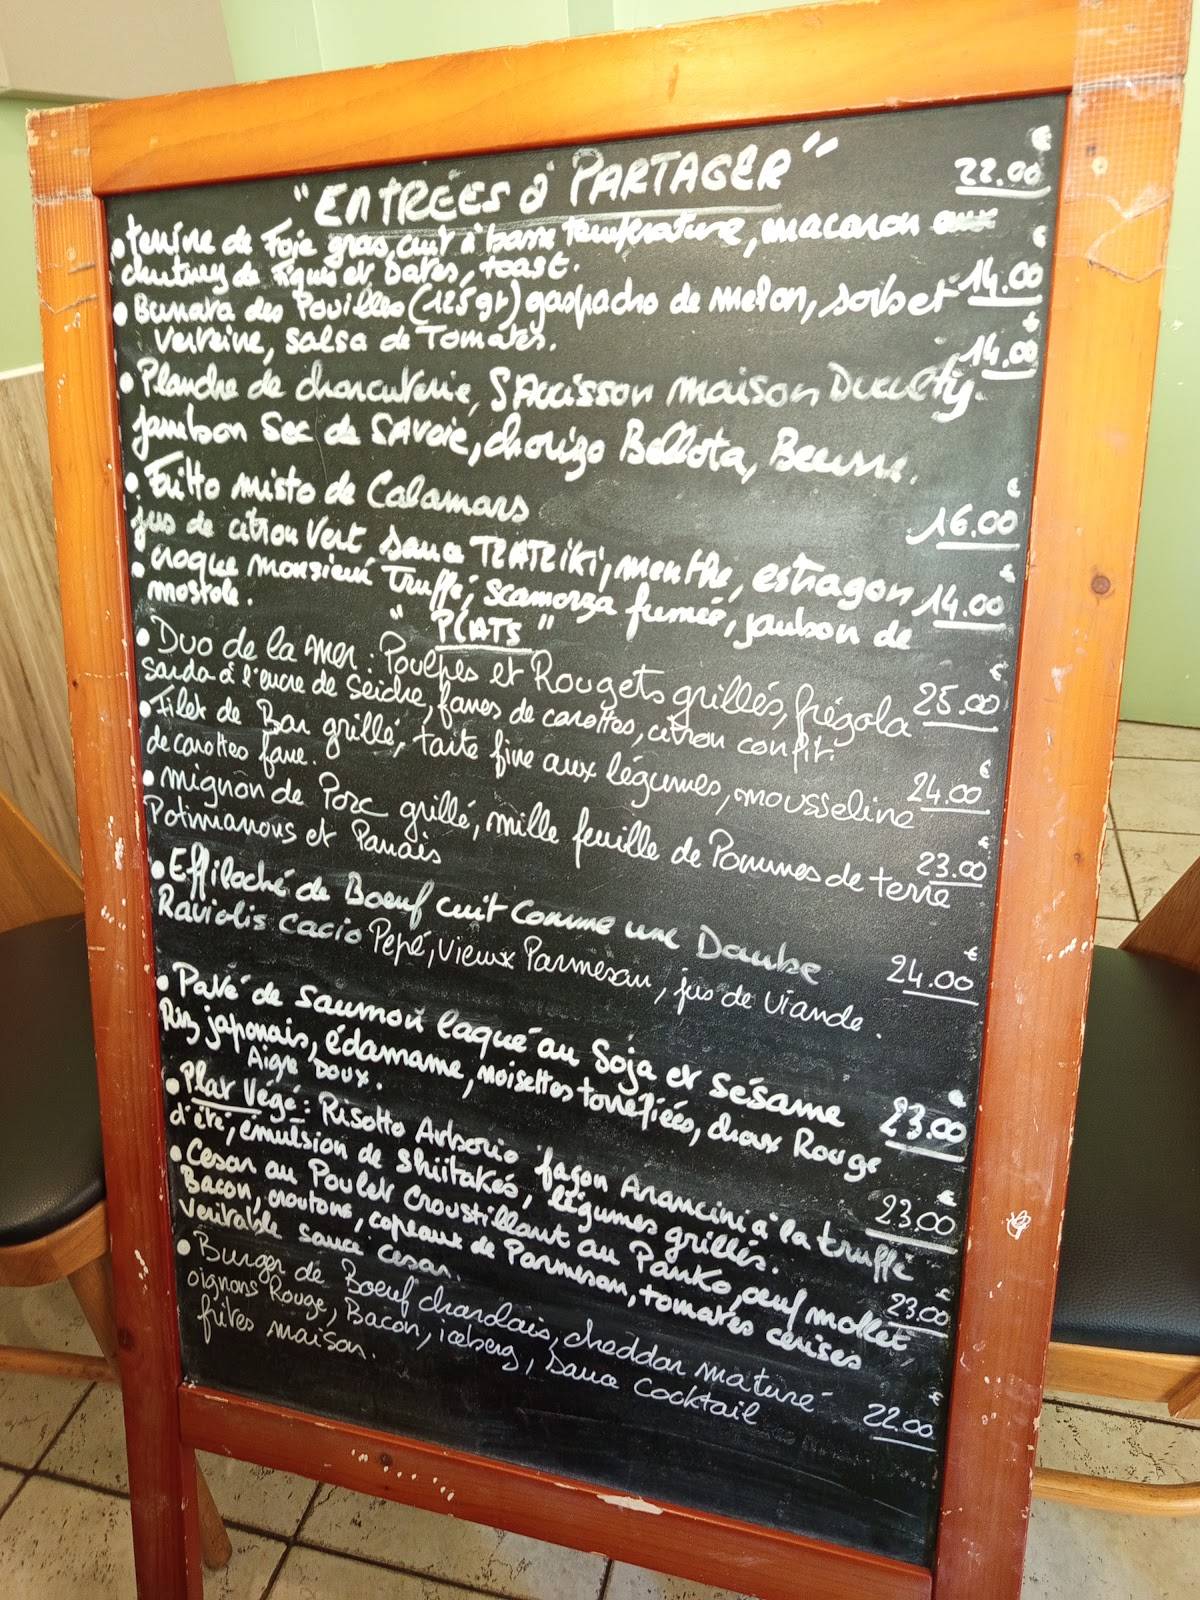 "ENTRÉES à PARTAGER"
• terrine de Foie gras, cuit à basse température, macaron aux 22.00 €
chutney de Figues et Dates, toast.
• Burrata des Pouilles (125 gr) gaspacho de melon, sorbet 14.00 €
verveine, salsa de Tomates.
• Planche de charcuterie, SAucisson maison 14.00 €
jambon Sec de SAVOIE, chorizo Bellota, Beurre.
• Fritto misto de Calamars 16.00 €
jus de citron Vert sauce TZATZIKI, menthe, estragon
• croque monsieur Truffé, scamorza fumée, jambon de 14.00 €
mostole.
"PLATS"
• Duo de la mer : Poulpes et Rougets grillés, frégola 25.00 €
sarda à l'encre de seiche, fanes de carottes, citron confit.
• Filet de Bar grillé, tarte fine aux légumes, mousseline 24.00 €
de carottes fane.
• mignon de Porc grillé, mille feuille de Pommes de terre 23.00 €
Potimarrons et Panais
• Effiloché de Boeuf cuit Comme une Daube 24.00 €
Raviolis cacio Pepé, Vieux Parmesan, jus de viande.
• Pavé de saumon laqué au Soja et sésame 23.00 €
Riz japonais, édamame, noisettes torréfiées, choux Rouge
Aigre Doux.
• Plat Végé : Risotto Arborio façon Arancini à la truffe 23.00 €
d'été, émulsion de shiitakés, légumes grillés.
• Cesar au Poulet Croustillant au Panko, oeuf mollet 23.00 €
Bacon, croutons, copeaux de Parmesan, tomates cerises
veritable sauce cesar.
• Burger de Boeuf charolais, cheddar maturé 22.00 €
oignons Rouge, Bacon, iceberg, Sauce Cocktail
frites maison.